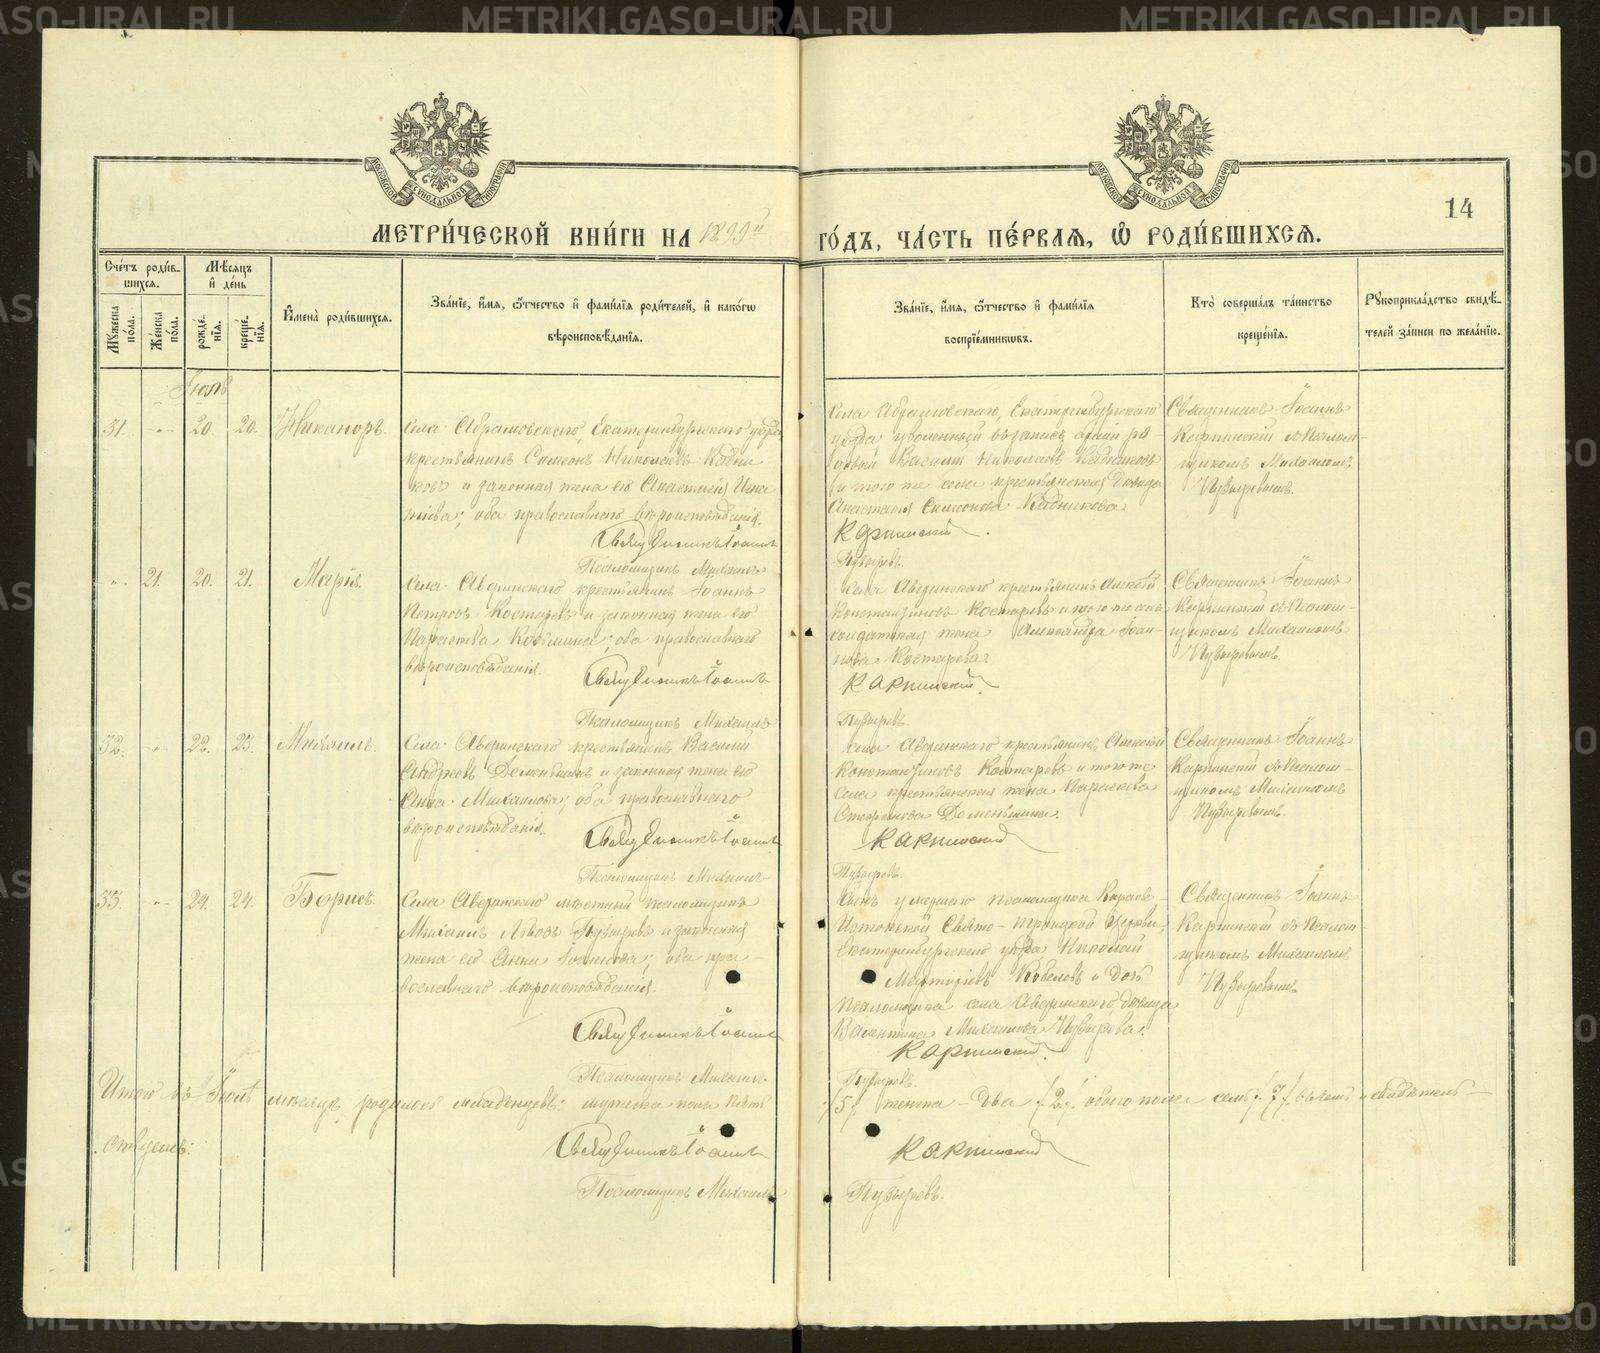 METRIKI.GASO-URAL.RU
14
МЕТРИ́ЧЕСКОЙ КНИ́ГИ НА 1899й ГО́ДЪ, ЧА́СТЬ ПЕ́РВАЯ, Ѿ РОДИ́ВШИХСЯ.
Сче́тъ роди́вшихся.
Мѣсяцъ и де́нь
Му́жеска по́ла.
Же́нска по́ла.
рожде́нїя.
креще́нїя.
Имена̀ роди́вшихся.
Зва́нїе, и́мя, ѻ́тчество и фами́лїя роди́телей, и како́гѡ вѣроисповѣ́данїя.
Зва́нїе, и́мя, ѻ́тчество и фами́лїя воспрїе́мникѡвъ.
Кто̀ соверша́лъ та́инство креще́нїя.
Рꙋкоприкла́дство свидѣ́телей за́писи по жела́нїю.
Іюль
31. 20 20. Никаноръ.
Села Абрамовскаго, Екатеринбургскаго уѣзда
крестьянинъ Симеонъ Николаевъ Кадни-
ковъ и законная жена его Анастасія Игна
тіева; оба православнаго вѣроисповѣданія.
Священникъ Іоаннъ
Псаломщикъ Михаилъ
Села Абрамовскаго, Екатеринбургскаго
уѣзда уволенный въ запасъ арміи ря-
довый Василій Николаевъ Кадниковъ
и того же села крестьянская дѣвица
Анастасія Симеонова Кадникова
Карпинскій.
Пузыревъ.
Священникъ Іоаннъ
Карпинскій съ псалом-
щикомъ Михаиломъ
Пузыревымъ.
21. 20. 21. Марія
Села Аверинскаго крестьянинъ Іоаннъ
Петровъ Костаревъ и законная жена его
Параскева Козьмина; оба православнаго
вѣроисповѣданія.
Священникъ Іоаннъ
Псаломщикъ Михаилъ
Села Аверинскаго крестьянинъ Алексій
Константиновъ Костаревъ и того же села
солдатская жена Александра Іоан-
нова Костарева
Карпинскій.
Пузыревъ.
Священникъ Іоаннъ
Карпинскій съ псалом-
щикомъ Михаиломъ
Пузыревымъ.
32. 22. 23. Михаилъ.
Села Аверинскаго крестьянинъ Василій
Андреевъ Деменьшинъ и законная жена его
Анна Михаилова; оба православнаго
вѣроисповѣданія.
Священникъ Іоаннъ
Псаломщикъ Михаилъ
Села Аверинскаго крестьянинъ Алексій
Константиновъ Костаревъ и того же
села крестьянская жена Параскева
Стефанова Деменьшина.
Карпинскій
Пузыревъ.
Священникъ Іоаннъ
Карпинскій съ псалом-
щикомъ Михаиломъ
Пузыревымъ.
33. 24. 24. Борисъ.
Села Аверинскаго мѣстный псаломщикъ
Михаилъ Львовъ Пузыревъ и законная
жена его Анна Іоаннова; оба пра-
вославнаго вѣроисповѣданія.
Священникъ Іоаннъ
Псаломщикъ Михаилъ
Сынъ умершаго псаломщика
Истокской Свято-Троицкой церкви,
Екатеринбургскаго уѣзда Николай
и дочь
псаломщика села Аверинскаго дѣвица
Валентина Михаилова Пузырева.
Карпинскій.
Пузыревъ.
Священникъ Іоаннъ
Карпинскій съ псалом-
щикомъ Михаиломъ
Пузыревымъ
Итого въ Іюлѣ мѣсяцѣ родилось младенцевъ: мужеска пола пять /5/ женска – два /2./ обоего пола семь /7/. въ чемъ и свидѣтель-
ствуемъ:
Священникъ Іоаннъ Карпинскій
Псаломщикъ Михаилъ Пузыревъ.